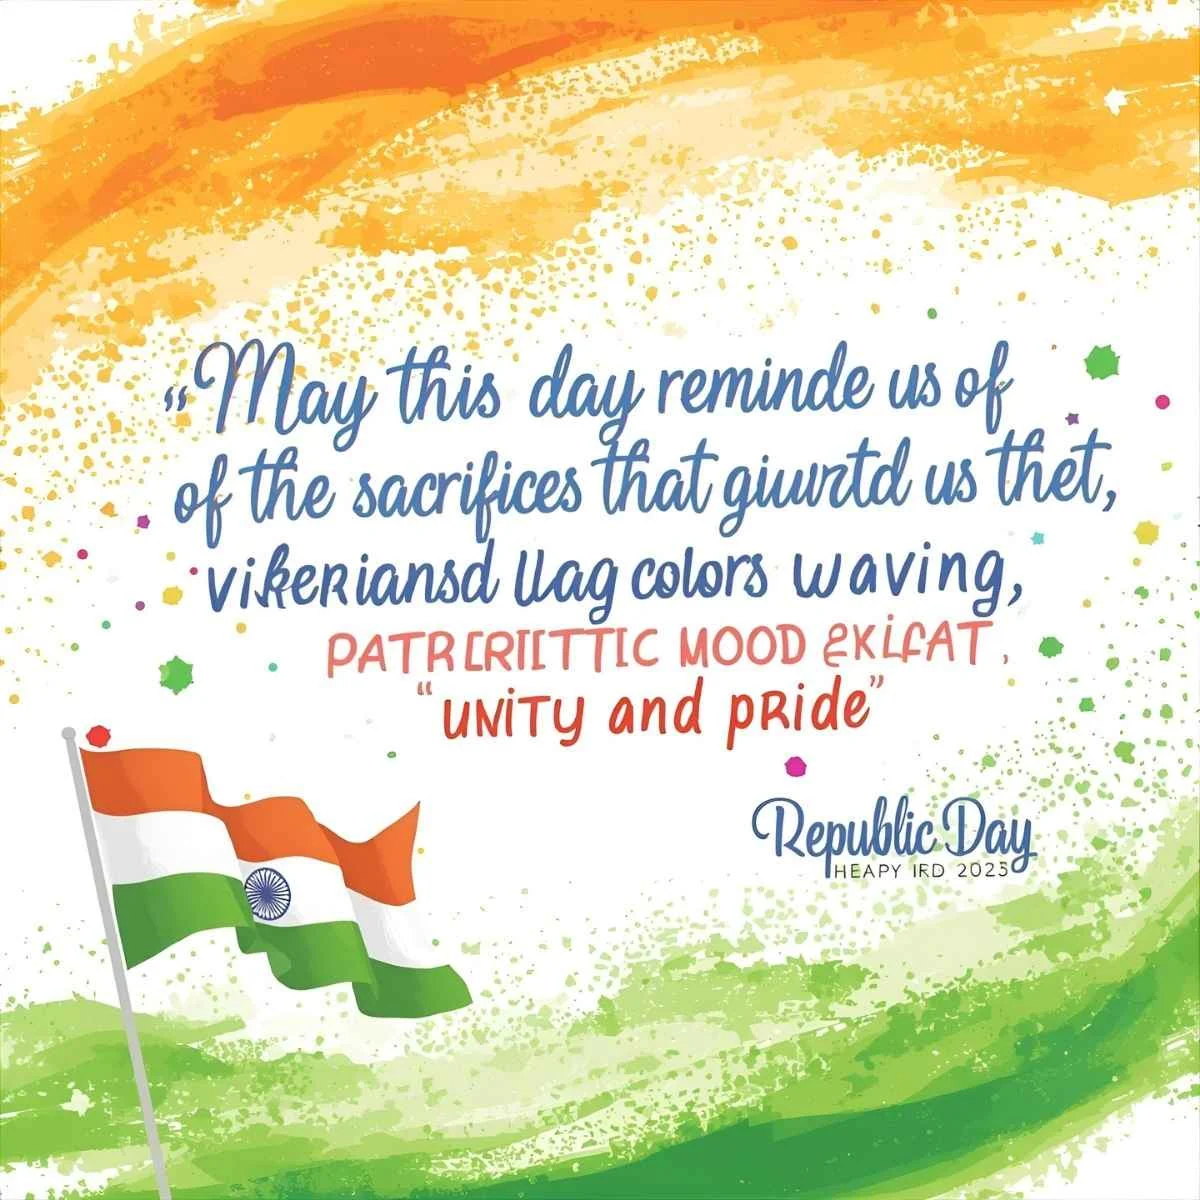 “May this day reminde us of
of the sacrifices that giuvrtd us thet,
vikeriansd llag colors waving,
PATRERIETTIC MOOD
“UNiTY and pRide”
Republic Day
HEAPY IRD 2025